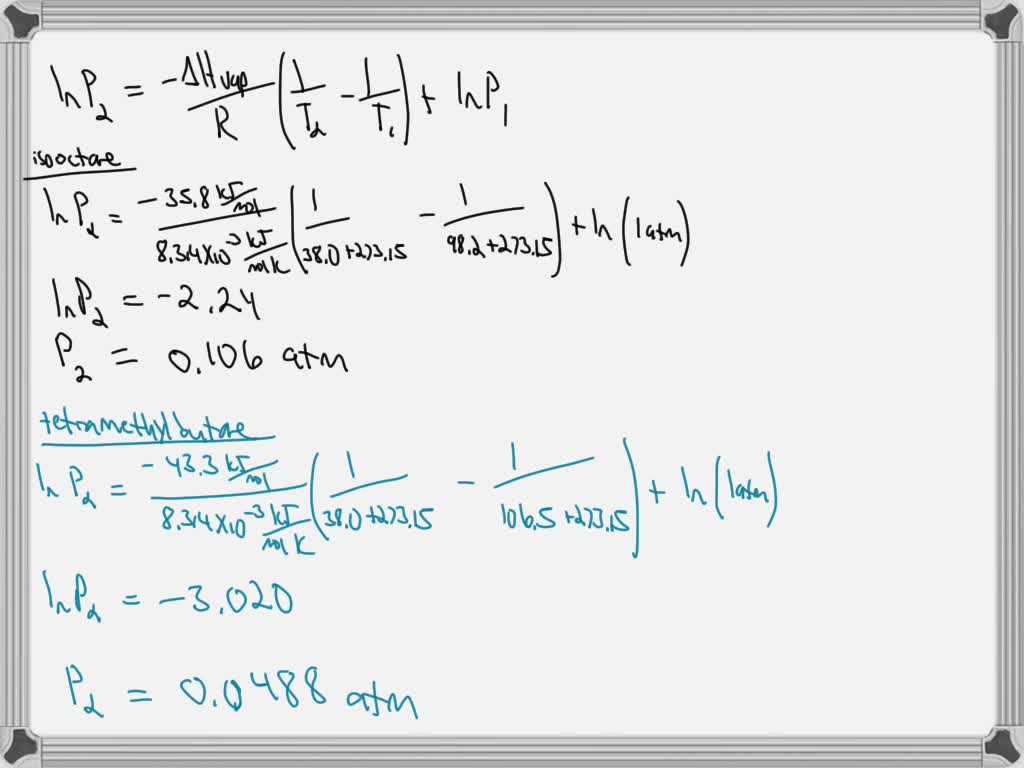 ln P₂ = -ΔHvap/R (1/T₂ - 1/T₁) + ln P₁
isooctane
ln P₂ = -35.8 kJ/mol / 8.314×10⁻³ kJ/mol K (1/38.0+273.15 - 1/98.2+273.15) + ln (1 atm)
ln P₂ = -2.24
P₂ = 0.106 atm
tetramethylbutane
ln P₂ = -43.3 kJ/mol / 8.314×10⁻³ kJ/mol K (1/38.0+273.15 - 1/106.5+273.15) + ln (1 atm)
ln P₂ = -3.020
P₂ = 0.0488 atm